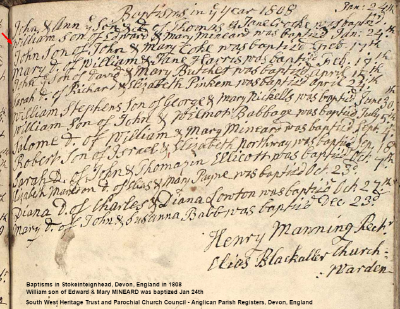 Baptisms in ye year 1808
John & Ann y Son & d. of Thomas & Jane was baptized Jan: 24th
William son of & mary mineard was baptized Jan: 24th
John, son of John & Mary was baptized Feb 17th
Mary d. of William & Jane Harris was baptized Feb. 19th
John son of David & Mary Butcher was baptized April
Sarah d. of Richard & Elizabeth was baptized April
William Stephens Son of George & Mary Michells was baptized June
William Son of John & Wilmot Babbage was baptized July
Salome d. of William & Mary Mineard was baptized Sept
Robert Son of Israel & Elizabeth Northway was baptized
Sarah D. of John & Thomasin Ellicott was baptized Oct
Elizabeth d. of & Mary Payne was baptized Oct 23d
Diana d. of Charles & Diana Lowton was baptized Oct
Mary d. of John & Susanna Babb was baptized Dec 23d
Henry Manning Rectr
Elias Blackaller Church-
Warden
Baptisms in Stokeinteignhead, Devon, England in 1808
William son of Edward & Mary MINEARD was baptized Jan 24th
South West Heritage Trust and Parochial Church Council - Anglican Parish Registers, Devon, England